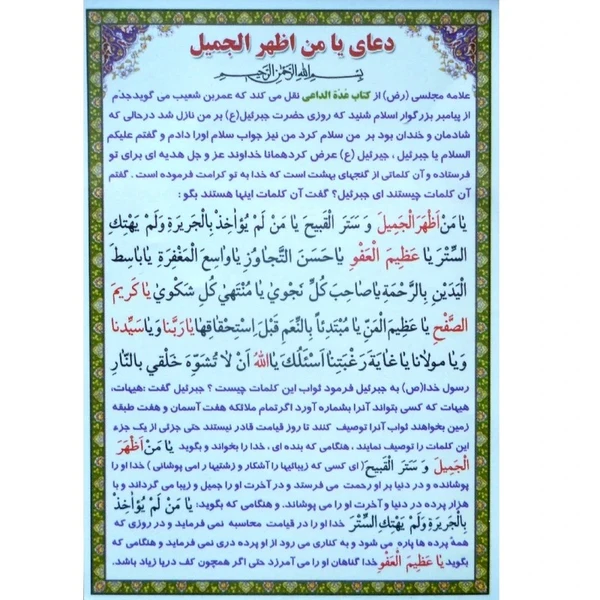 دعای یا من اظهر الجمیل
بسم الله الرحمن الرحیم
علامه مجلسی (رض) از کتاب عُدّة الداعی نقل می کند که عمربن شعیب می گوید جدّم
از پیامبر بزرگوار اسلام شنید که روزی حضرت جبرئیل(ع) بر من نازل شد درحالی که
شادمان و خندان بود بر من سلام کرد من نیز جواب سلام اورا دادم و گفتم علیکم
السلام یا جبرئیل ، جبرئیل (ع) عرض کردهمانا خداوند عز و جل هدیه ای برای تو
فرستاده و آن کلماتی از گنجهای بهشت است که خدا به تو کرامت فرموده است . گفتم
آن کلمات چیستند ای جبرئیل؟ گفت آن کلمات اینها هستند بگو :
یا مَنْ اَظْهَرَ الْجَمیلَ وَ سَتَرَ الْقَبیحَ یا مَنْ لَمْ یُؤاخِذْ بِالْجَریرَةِ وَلَمْ یَهْتِكِ
السِّتْرَ یا عَظیمَ الْعَفْوِ یاحَسَنَ التَّجاوُزِ یاواسِعَ الْمَغْفِرَةِ یاباسِطَ
الْیَدَیْنِ بِالرَّحْمَةِ یاصاحِبَ کُلِّ نَجْوي یا مُنْتَهيٰ کُلِ شَکْوي یا کَریمَ
الصَّفْحِ یا عَظیمَ الْمَنِّ یا مُبْتَدِئاً بِالنِّعَمِ قَبْلَ اِسْتِحْقاقِها یا رَبَّنا وَ یا سَیِّدنا
وَ یا مولانا یا غایَةَ رَغْبَتِنا اَسْئَلُكَ یا اَللهُ اَنْ لا تُشَوِّهَ خَلْقي بِالنّارِ
رسول خدا(ص) به جبرئیل فرمود ثواب این کلمات چیست ؟ جبرئیل گفت :هیهات،
هیهات که کسی بتواند آنرا بشماره آورد اگرتمام ملائکه هفت آسمان و هفت طبقه
زمین بخواهند ثواب آنرا توصیف کنند تا روز قیامت قادر نیستند حتی جزئی از یک جزء
این کلمات را توصیف نمایند ، هنگامی که بنده ای ، خدا را بخواند و بگوید یا مَنْ اَظْهَرَ
الْجَمیلَ وَ سَتَرَ الْقَبیحَ( ای کسی که زیبائیها را آشکار و زشتیها ر امی پوشانی ) خدا او را
پوشانده و در دنیا بر او رحمت می فرستد و در آخرت او را جمیل و زیبا می گرداند و با
هزار پرده در دنیا و آخرت او را می پوشاند. و هنگامی که بگوید: یا مَنْ لَمْ یُؤاخِذْ
بِالْجَریرَةِ وَلَمْ یَهْتِكِ السِّتْرَ خدا او را در قیامت محاسبه نمی فرماید و در روزی که
همهٔ پرده ها پاره می شود و به کناری می رود از او پرده دری نمی فرماید و هنگامی که
بگوید یا عَظیمَ الْعَفْوِ خدا گناهان او را می آمرزد حتی اگر همچون کف دریا زیاد باشد.